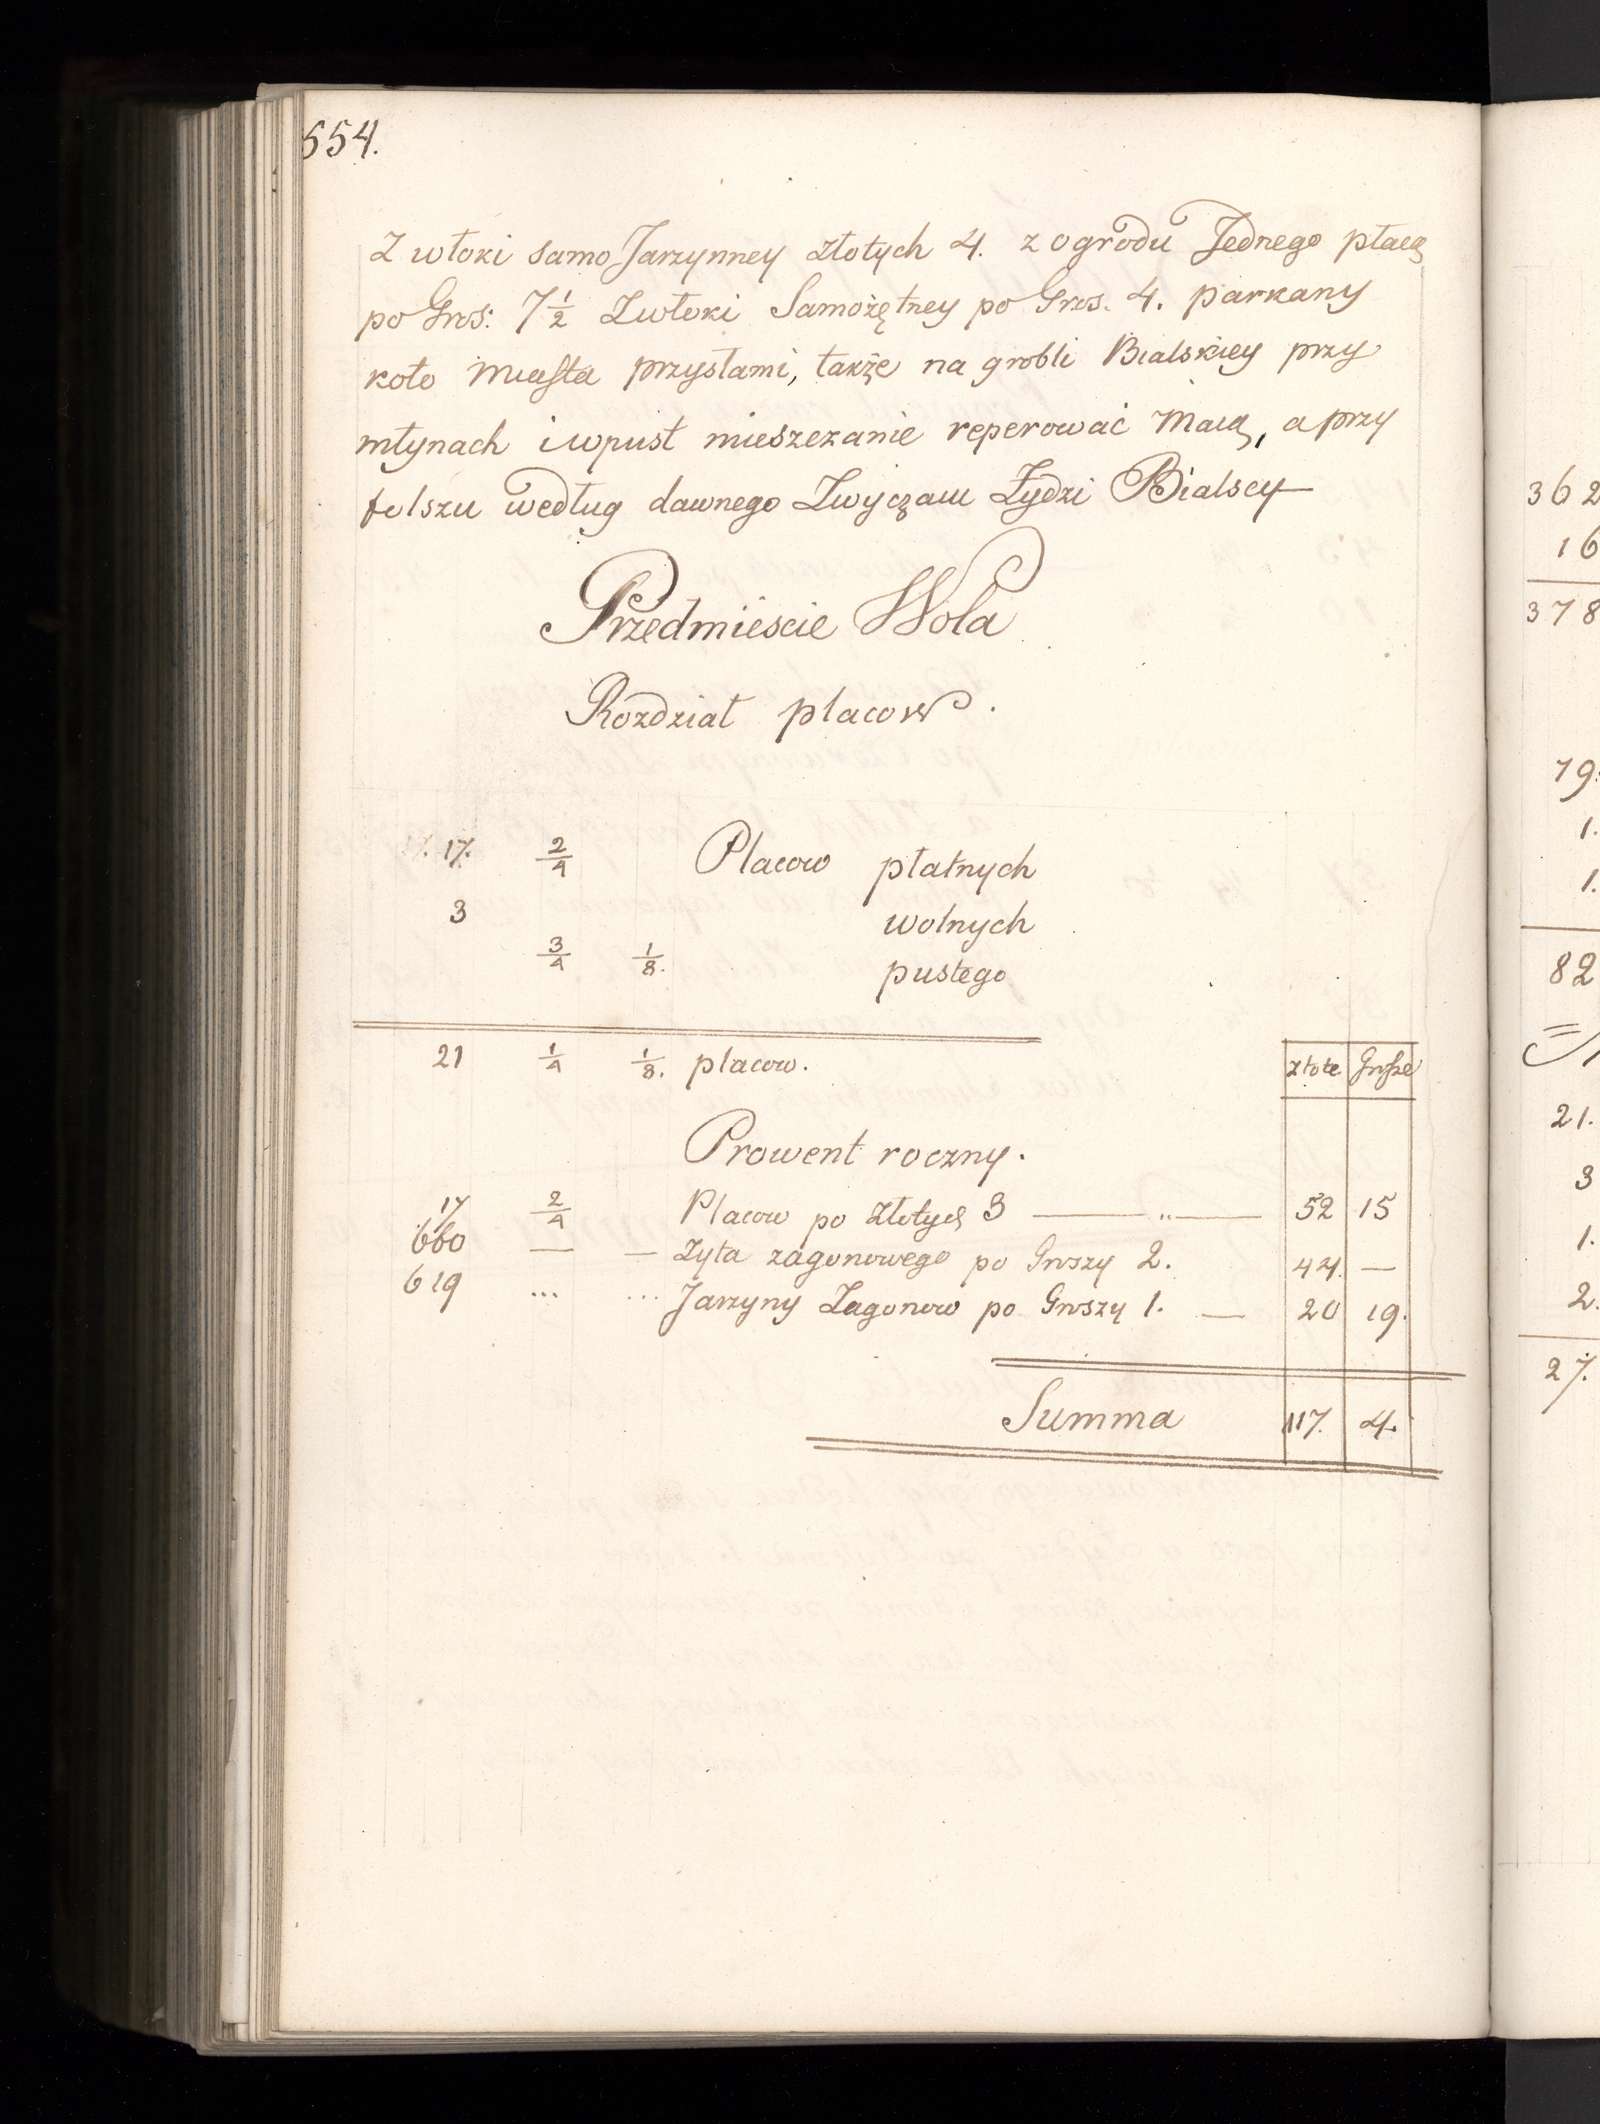 554.
Z włoki samo Jarzynney złotych 4. z ogrodu Jednego płacą
po Gros: 7 1/2 Zwłoki Samożętney po Gros. 4. parkany
koło Miasta przysłami, także na grobli Bialskiey przy
młynach i wpust mieszczanie reperować Maią, a przy
folszu według dawnego Zwyczaiu Żydzi Bialscy
Przedmieście Wola
Rozdział placow.
17. 2/4 Placow płatnych
3 wolnych
3/4 1/8. pustego
21 1/4 1/8. placow.
złote Grosze
Prowent roczny.
17 2/4 Placow po złotych 3 — „ — 52 15
660 — — Zyta zagonowego po Groszy 2. 44. —
619 ... ... Jarzyny Zagonow po Groszy 1. — 20 19.
Summa 117. 4.
362
16
378
79:
1.
1.
82
21.
3
1.
2.
27.